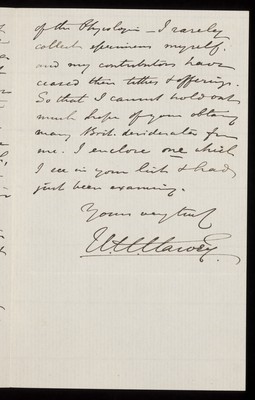 of the Phycologia — I rarely
collect specimens myself.
and my contributors have
ceased their tithes & offerings.
So that I cannot hold out
much hope of your obtaining
many Brit. desiderata from
me. I enclose one which
I see in your list & had
just been examining.
Yours very truly
W. H. Harvey